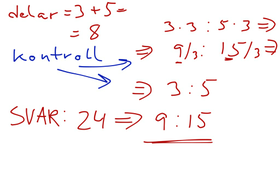 delar = 3 + 5 =
= 8
kontroll
3 · 3 : 5 · 3 ⇒
⇒ 9/3 : 15/3 ⇒
⇒ 3 : 5
SVAR: 24 ⇒ 9 : 15